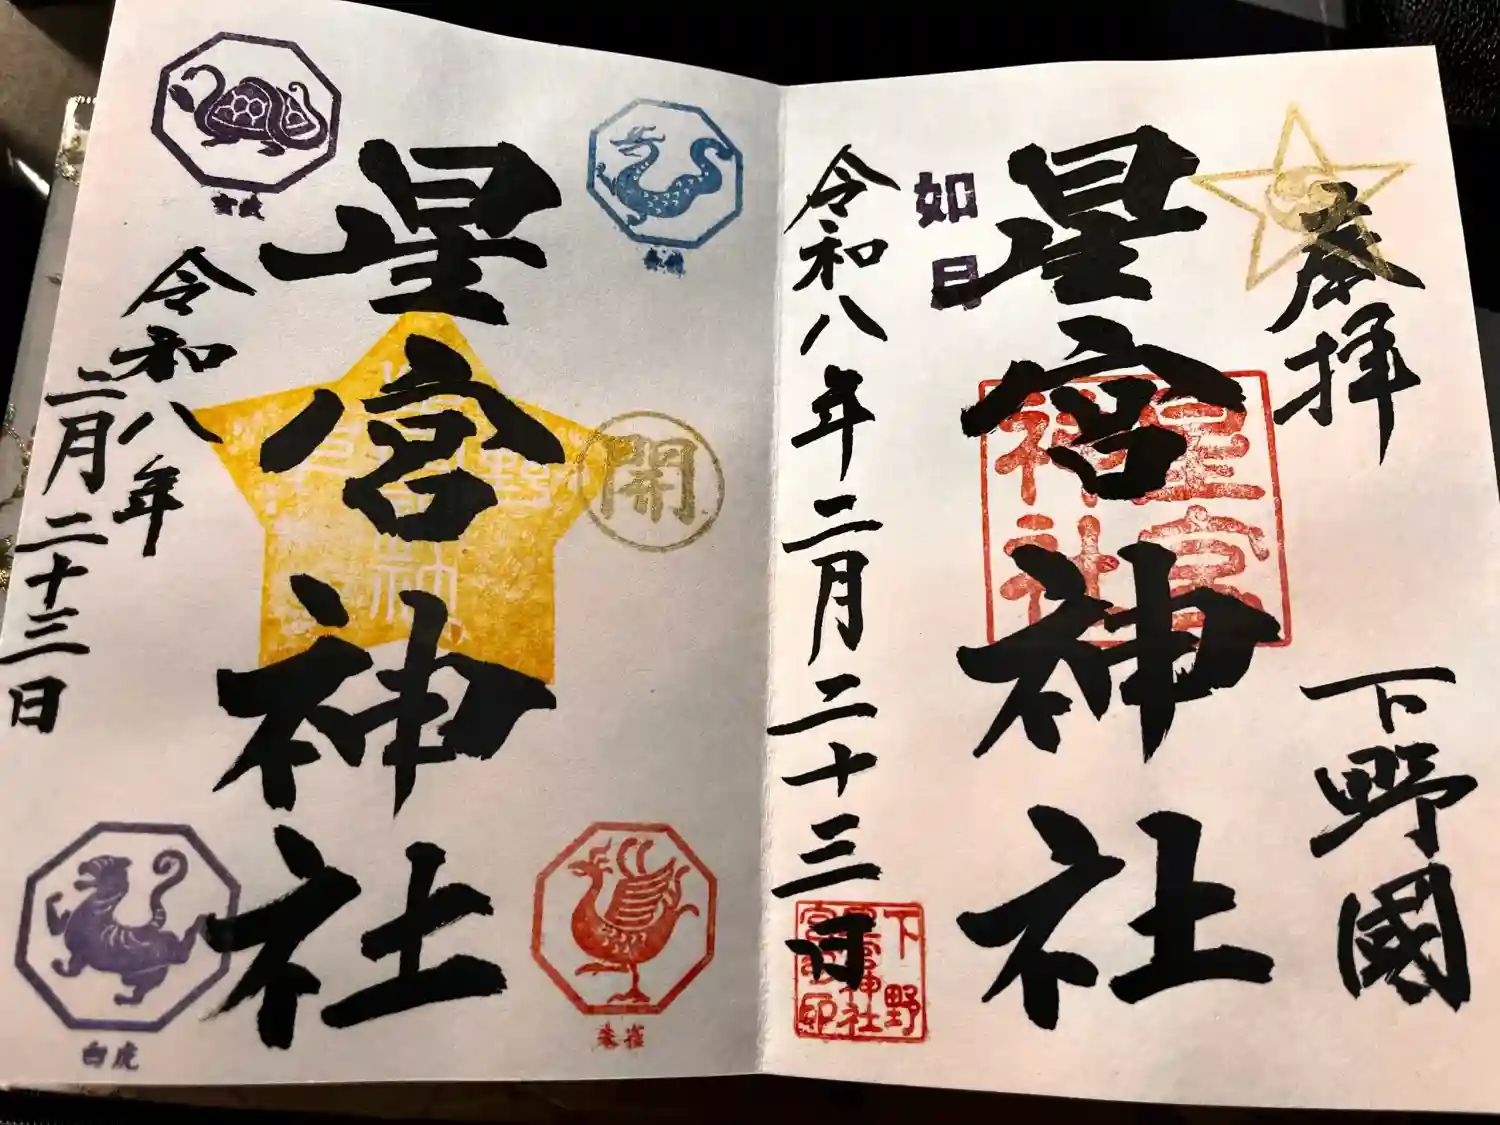 奉拝
下野國
星宮神社
星宮
神社
如
日
令和八年二月二十三日
下野
宮印
星宮神社
開
令和八年
二月二十三日
玄武
青龍
白虎
朱雀